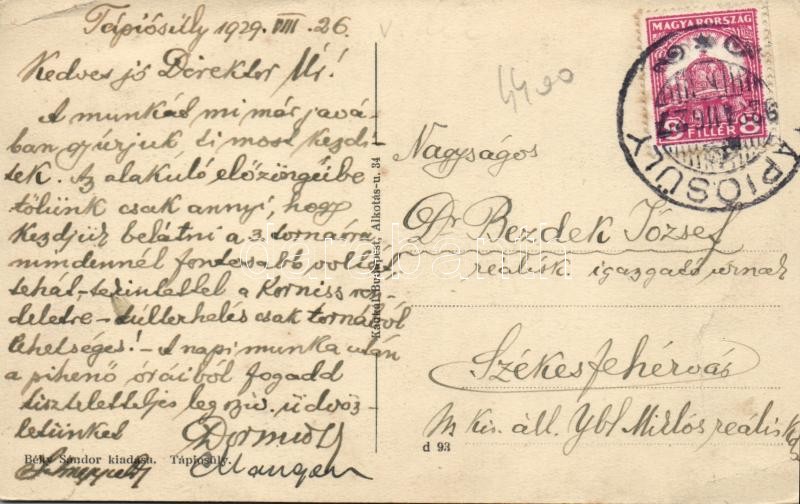 Tápiósüly 1929. VIII. 26.
Kedves jó Direktor Úr!
A munkát mi már javá-
ban gyúrjuk ti most kezdi-
tek. Az alakuló előzöngéibe
tőlünk csak annyi, hogy
kezdjük belátni a 3. tornaóra
mindennél fontosabb voltát
tehát tekintettel a Korniss ren-
deletre – túlterhelés csak tornából
lehetséges! – A napi munka után
a pihenő óráiból fogadd
tiszteletteljes leg szív. üdvöz-
letünket
Mangen
Béky Sándor kiadása. Tápiósüly.
Budapest, Alkotás-u. 34
4400
MAGYARORSZÁG
8 FILLÉR 8
TÁPIÓSÜLY
Nagyságos
Dr Bezdek József
reálisk igazgató úrnak
Székesfehérvár
M kir. áll. Ybl Miklós reálisk
d 93
darabanth